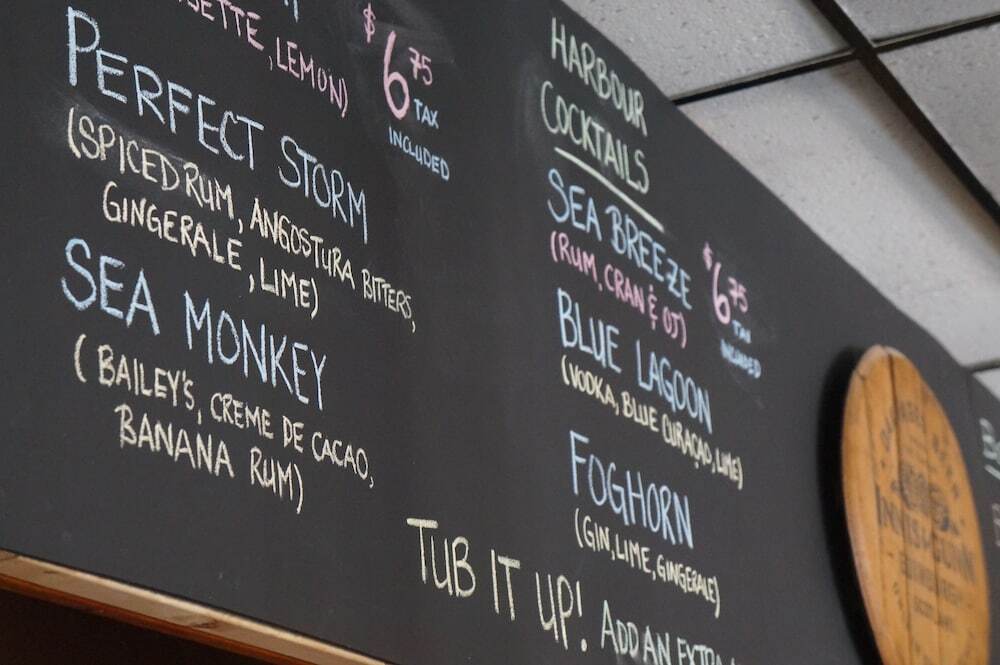 , LEMON)
$6.75
TAX
INCLUDED
PERFECT STORM
(SPICED RUM, ANGOSTURA BITTERS,
GINGERALE, LIME)
SEA MONKEY
(BAILEY'S, CREME DE CACAO,
BANANA RUM)
HARBOUR
COCKTAILS
SEA BREEZE
(RUM, CRAN & OJ)
$6.75
TAX
INCLUDED
BLUE LAGOON
(VODKA, BLUE CURAÇAO, LIME)
FOGHORN
(GIN, LIME, GINGERALE)
TUB IT UP! ADD AN EXTRA